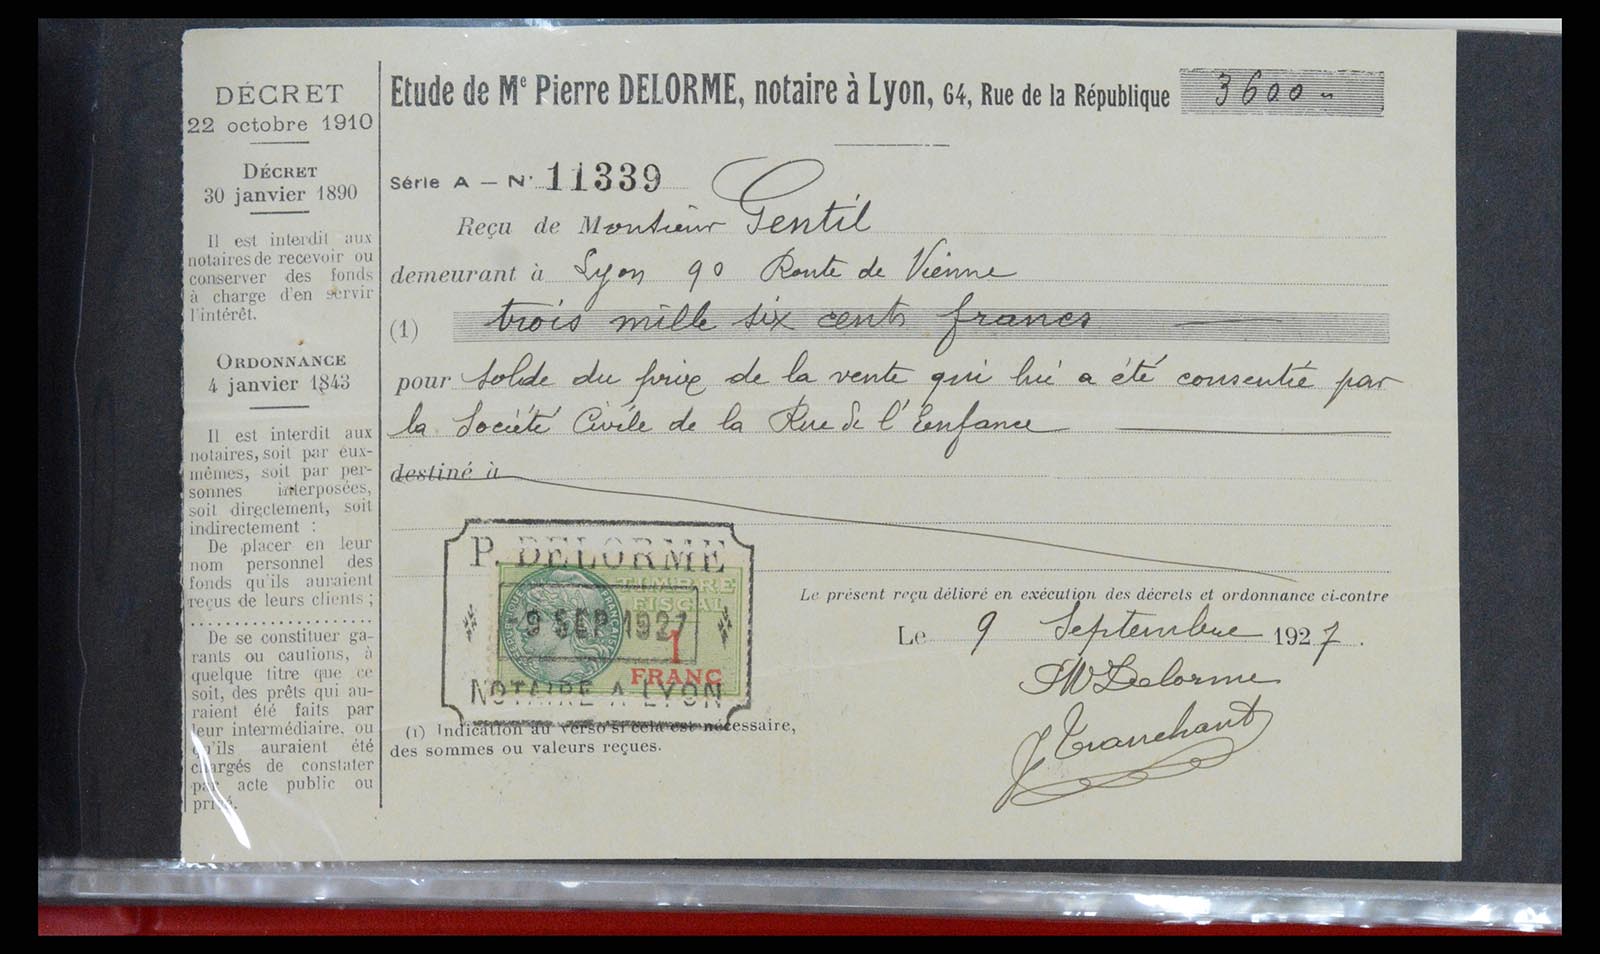 DÉCRET
22 octobre 1910
DÉCRET
30 janvier 1890
Il est interdit aux
notaires de recevoir ou
conserver des fonds
à charge d'en servir
l'intérêt.
ORDONNANCE
4 janvier 1843
Il est interdit aux
notaires, soit par eux-
mêmes, soit par per-
sonnes interposées,
soit directement, soit
indirectement :
De placer en leur
nom personnel des
fonds qu'ils auraient
reçus de leurs clients ;
De se constituer ga-
rants ou cautions, à
quelque titre que ce
soit, des prêts qui au-
raient été faits par
leur intermédiaire, ou
qu'ils auraient été
chargés de constater
par acte public ou
privé.
Etude de Me Pierre DELORME, notaire à Lyon, 64, Rue de la République 3600 "
Série A — N° 11339
Reçu de Monsieur Gentil
demeurant à Lyon 90 Route de Vienne
(1) trois mille six cents francs
pour solde du prix de la vente qui lui a été consentie par
la Société Civile de la Rue de l'Enfance
destiné à
P. DELORME
TIMBRE
FISCAL
9 SEP 1927
1
FRANC
NOTAIRE A LYON
(1) Indication au verso si cela est nécessaire,
des sommes ou valeurs reçues.
Le présent reçu délivré en exécution des décrets et ordonnance ci-contre
Le 9 Septembre 1927.
Delorme
J Tranchant